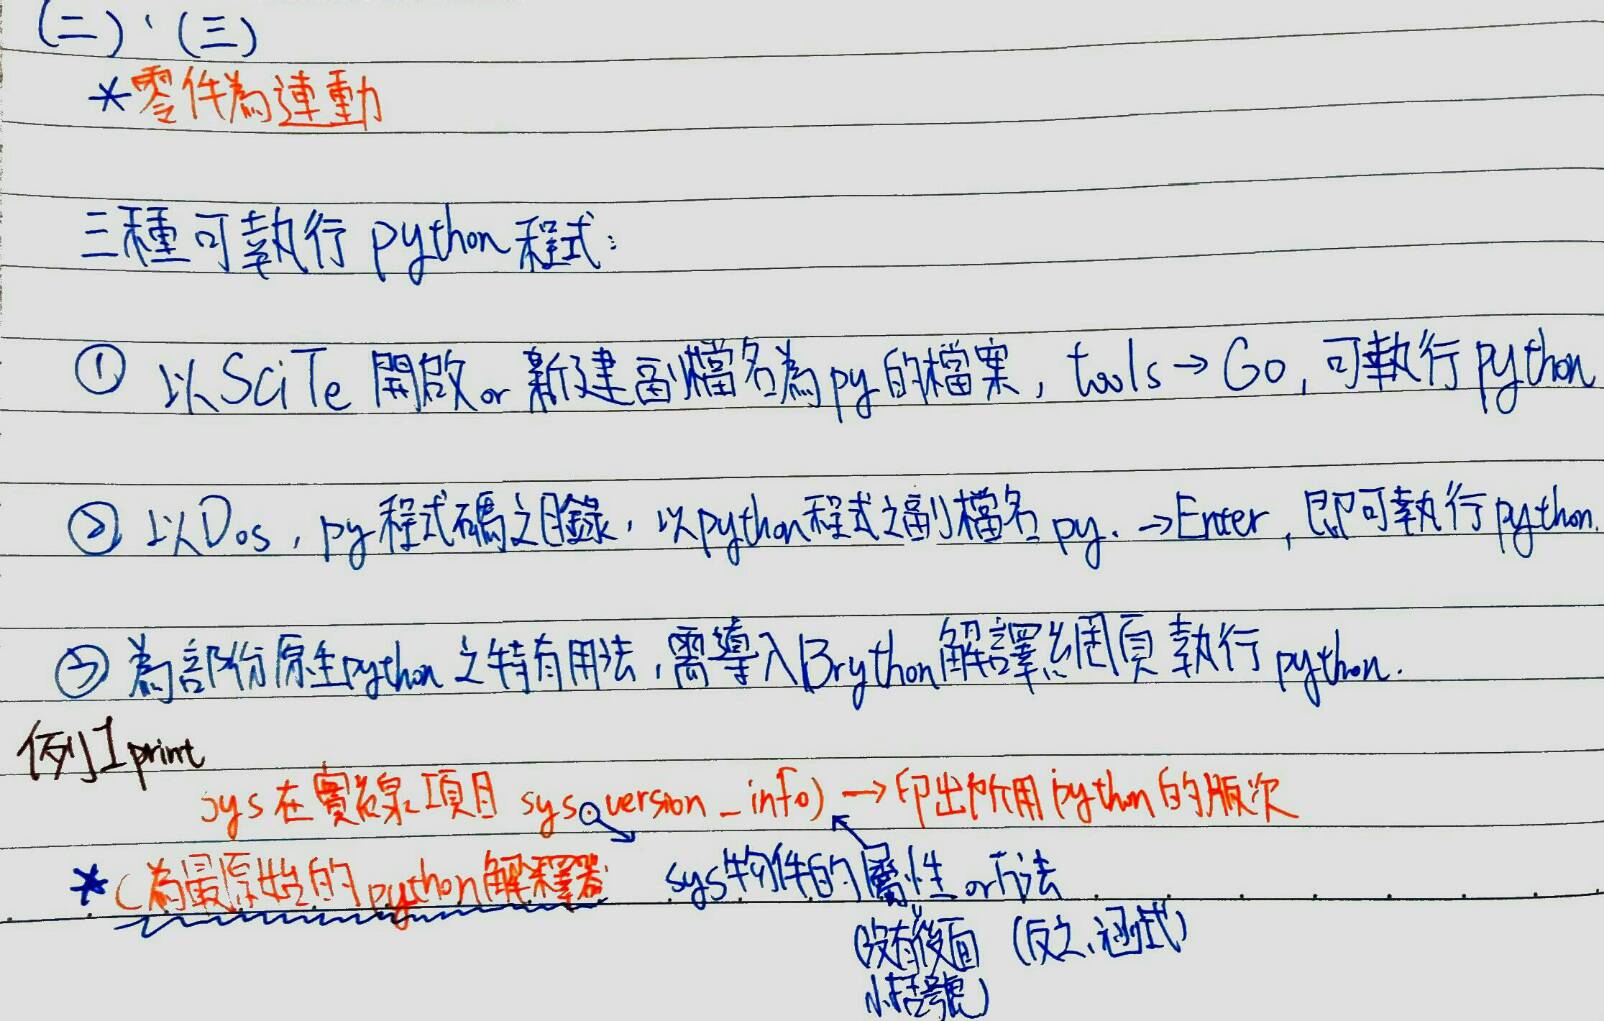 (二)、(三)
*零件為連動
三種可執行 python 程式:
① 以SciTe 開啟or 新建副檔名為py的檔案, tools→Go, 可執行python
② 以Dos, py程式碼之目錄, 以python程式之副檔名 py. →Enter, 即可執行python.
③ 為部份原生python 之特有用法,需導入Brython解譯網頁執行 python.
例1print
sys在 項目 sys.version_info) →印出所用python的版次
*(為最原始的python解釋器
sys物件的屬性or方法
(沒有後面 (反之,涵式)
小括號)